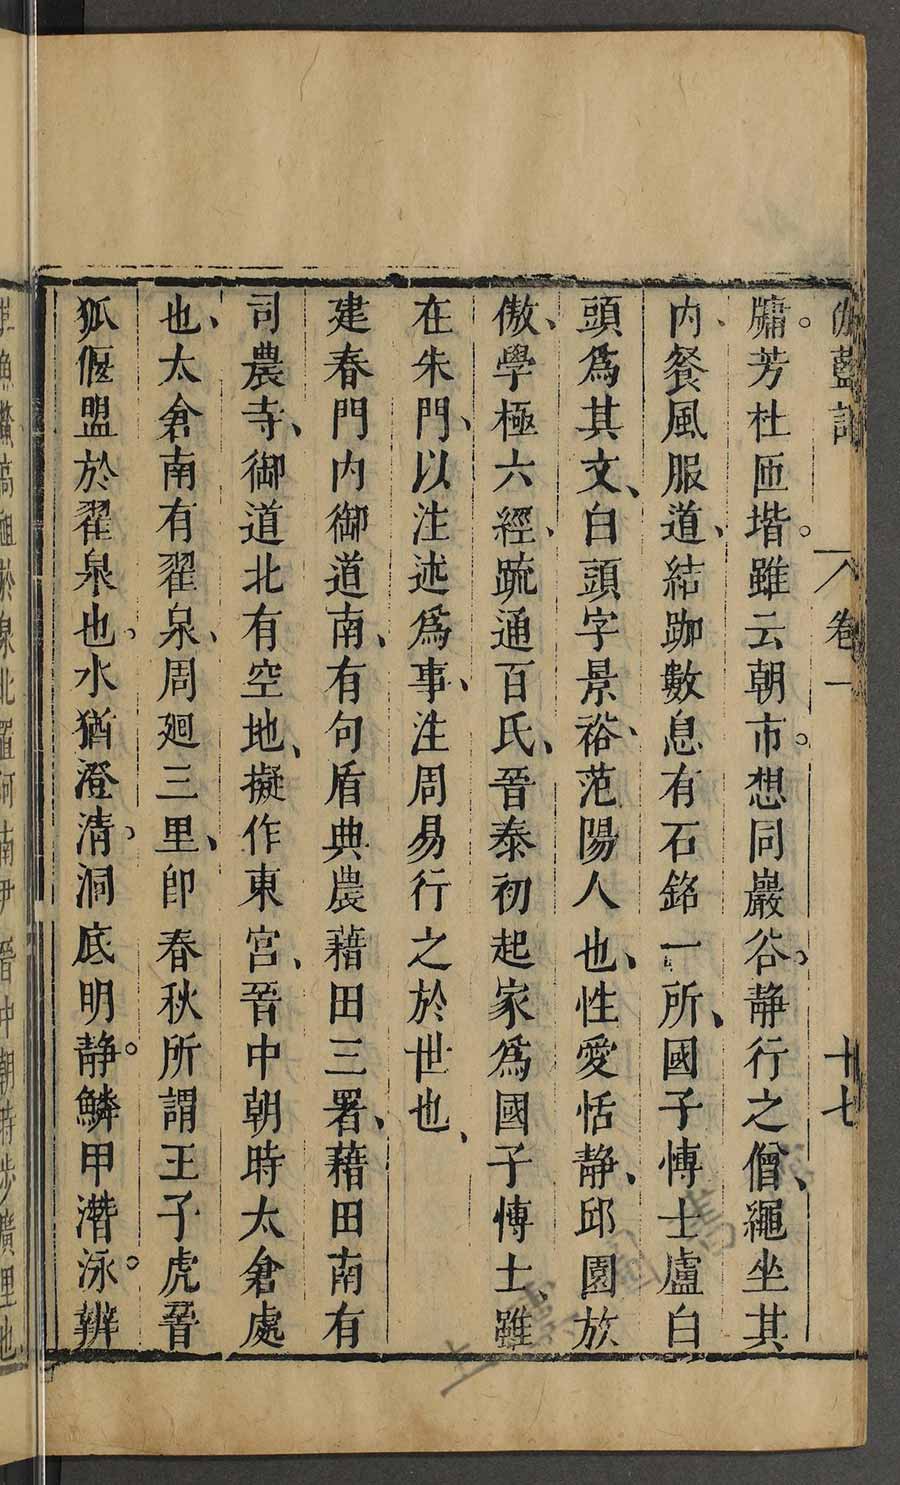 伽藍記 卷一 十七
牖。芳杜匝堦。雖云朝市。想同巖谷。静行之僧、繩坐其
内、餐風服道、結跏數息有石銘一所、國子愽士盧白
頭爲其文、白頭字景裕、范陽人也、性愛恬静、邱園放
傲、學極六經、疏通百氏、晉泰初起家爲國子愽士、雖
在朱門、以注述爲事、注周易行之於世也、
建春門内御道南、有句盾典農藉田三署、藉田南有
司農寺、御道北有空地、擬作東宫、晉中朝時太倉處
也、太倉南有翟泉、周廻三里、卽春秋所謂王子虎晉
狐偃盟於翟泉也。水猶澄清。洞底明静。鱗甲潛泳。辨